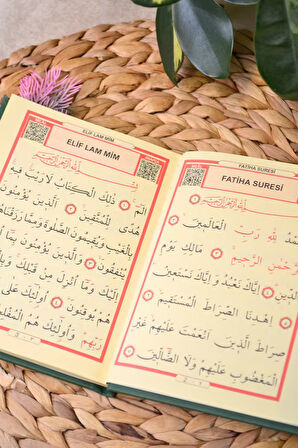 FATİHA SURESİ
FATİHA SURESİ
بِسْمِ اللّٰهِ الرَّحْمٰنِ الرَّحِيمِ
لِلّٰهِ رَبِّ الْعَالَمِينَ
الرَّحِيمِ مَالِكِ يَوْمِ
اِيَّاكَ نَعْبُدُ وَاِيَّاكَ نَسْتَعِينُ
اِهْدِنَا الصِّرَاطَ الْمُسْتَقِيمَ
صِرَاطَ الَّذِينَ اَنْعَمْتَ عَلَيْهِمْ غَيْرِ
الْمَغْضُوبِ عَلَيْهِمْ وَلَا الضَّالِّينَ
ELİF LAM MİM
ELİF LAM MİM
بِسْمِ اللّٰهِ الرَّحْمٰنِ الرَّحِيمِ
الٓمٓ ذٰلِكَ الْكِتَابُ لَا رَيْبَ فِيهِ
هُدًى لِلْمُتَّقِينَ اَلَّذِينَ يُؤْمِنُونَ
بِالْغَيْبِ وَيُقِيمُونَ الصَّلٰوةَ وَمِمَّا رَزَقْنَاهُمْ
يُنْفِقُونَ وَالَّذِينَ يُؤْمِنُونَ بِمَا
اِلَيْكَ وَمَا اُنْزِلَ مِنْ قَبْلِكَ
هُمْ يُوقِنُونَ اُولٰٓئِكَ عَلٰى
رَبِّهِمْ وَاُولٰٓئِكَ هُمُ